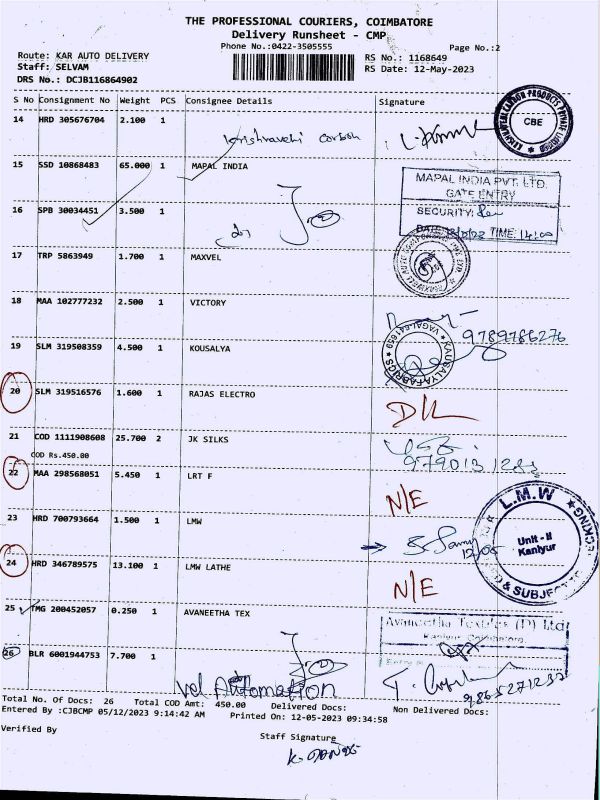 THE PROFESSIONAL COURIERS, COIMBATORE
Delivery Runsheet - CMP
Phone No.:0422-3505555
Page No.:2
Route: KAR AUTO DELIVERY
RS No.: 1168649
Staff: SELVAM
RS Date: 12-May-2023
DRS No.: DCJB116864902
S No Consignment No Weight PCS Consignee Details Signature
14 HRD 305676704 2.100 1
CBE
15 SSD 10868483 65.000 1 MAPAL INDIA
MAPAL INDIA PVT. LTD.
GATE ENTRY
SECURITY:
16 SPB 30034451 3.500 1
DATE: TIME: 14:00
17 TRP 5863949 1.700 1 MAXVEL
18 MAA 102777232 2.500 1 VICTORY
9789786276
19 SLM 319508359 4.500 1 KOUSALYA
20 SLM 319516576 1.600 1 RAJAS ELECTRO
D/L
21 COD 1111908608 25.700 2 JK SILKS
COD Rs.450.00
22 MAA 298568051 5.450 1 LRT F
N/E
L.M.W
23 HRD 700793664 1.500 1 LMW
Unit - II
Kaniyur
24 HRD 346789575 13.100 1 LMW LATHE
N/E
& SUBJE
25 TMG 200452057 0.250 1 AVANEETHA TEX
Avaneetha Textiles (P) Ltd
26 BLR 6001944753 7.700 1
Vel Automation
Total No. Of Docs: 26 Total COD Amt: 450.00 Delivered Docs: Non Delivered Docs:
Entered By :CJBCMP 05/12/2023 9:14:42 AM Printed On: 12-05-2023 09:34:58
Verified By
Staff Signature